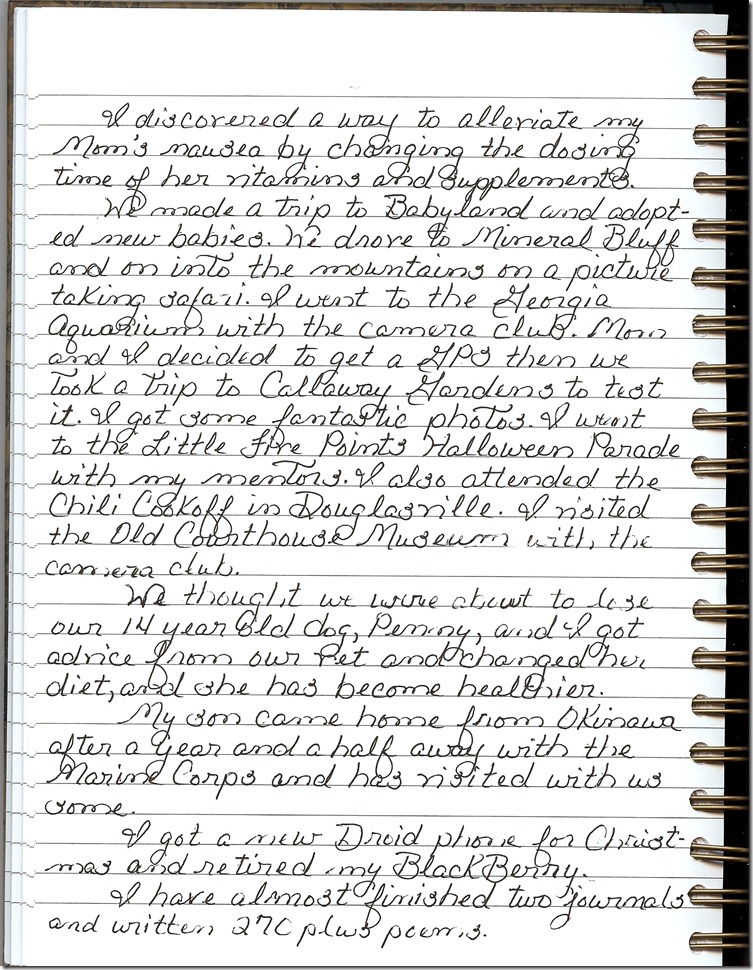 I discovered a way to alleviate my
Mom's nausea by changing the dosing
time of her vitamins and supplements.
We made a trip to Babyland and adopt-
ed new babies. We drove to Mineral Bluff
and on into the mountains on a picture
taking safari. I went to the Georgia
Aquarium with the camera club. Mom
and I decided to get a GPS then we
took a trip to Callaway Gardens to test
it. I got some fantastic photos. I went
to the Little Five Points Halloween Parade
with my mentors. I also attended the
Chili Cookoff in Douglasville. I visited
the Old Courthouse Museum with the
camera club.
We thought we were about to lose
our 14 year old dog, Penny, and I got
advice from our vet and changed her
diet, and she has become healthier.
My son came home from Okinawa
after a year and a half away with the
Marine Corps and has visited with us
some.
I got a new Droid phone for Christ-
mas and retired my BlackBerry.
I have almost finished two journals
and written 270 plus poems.